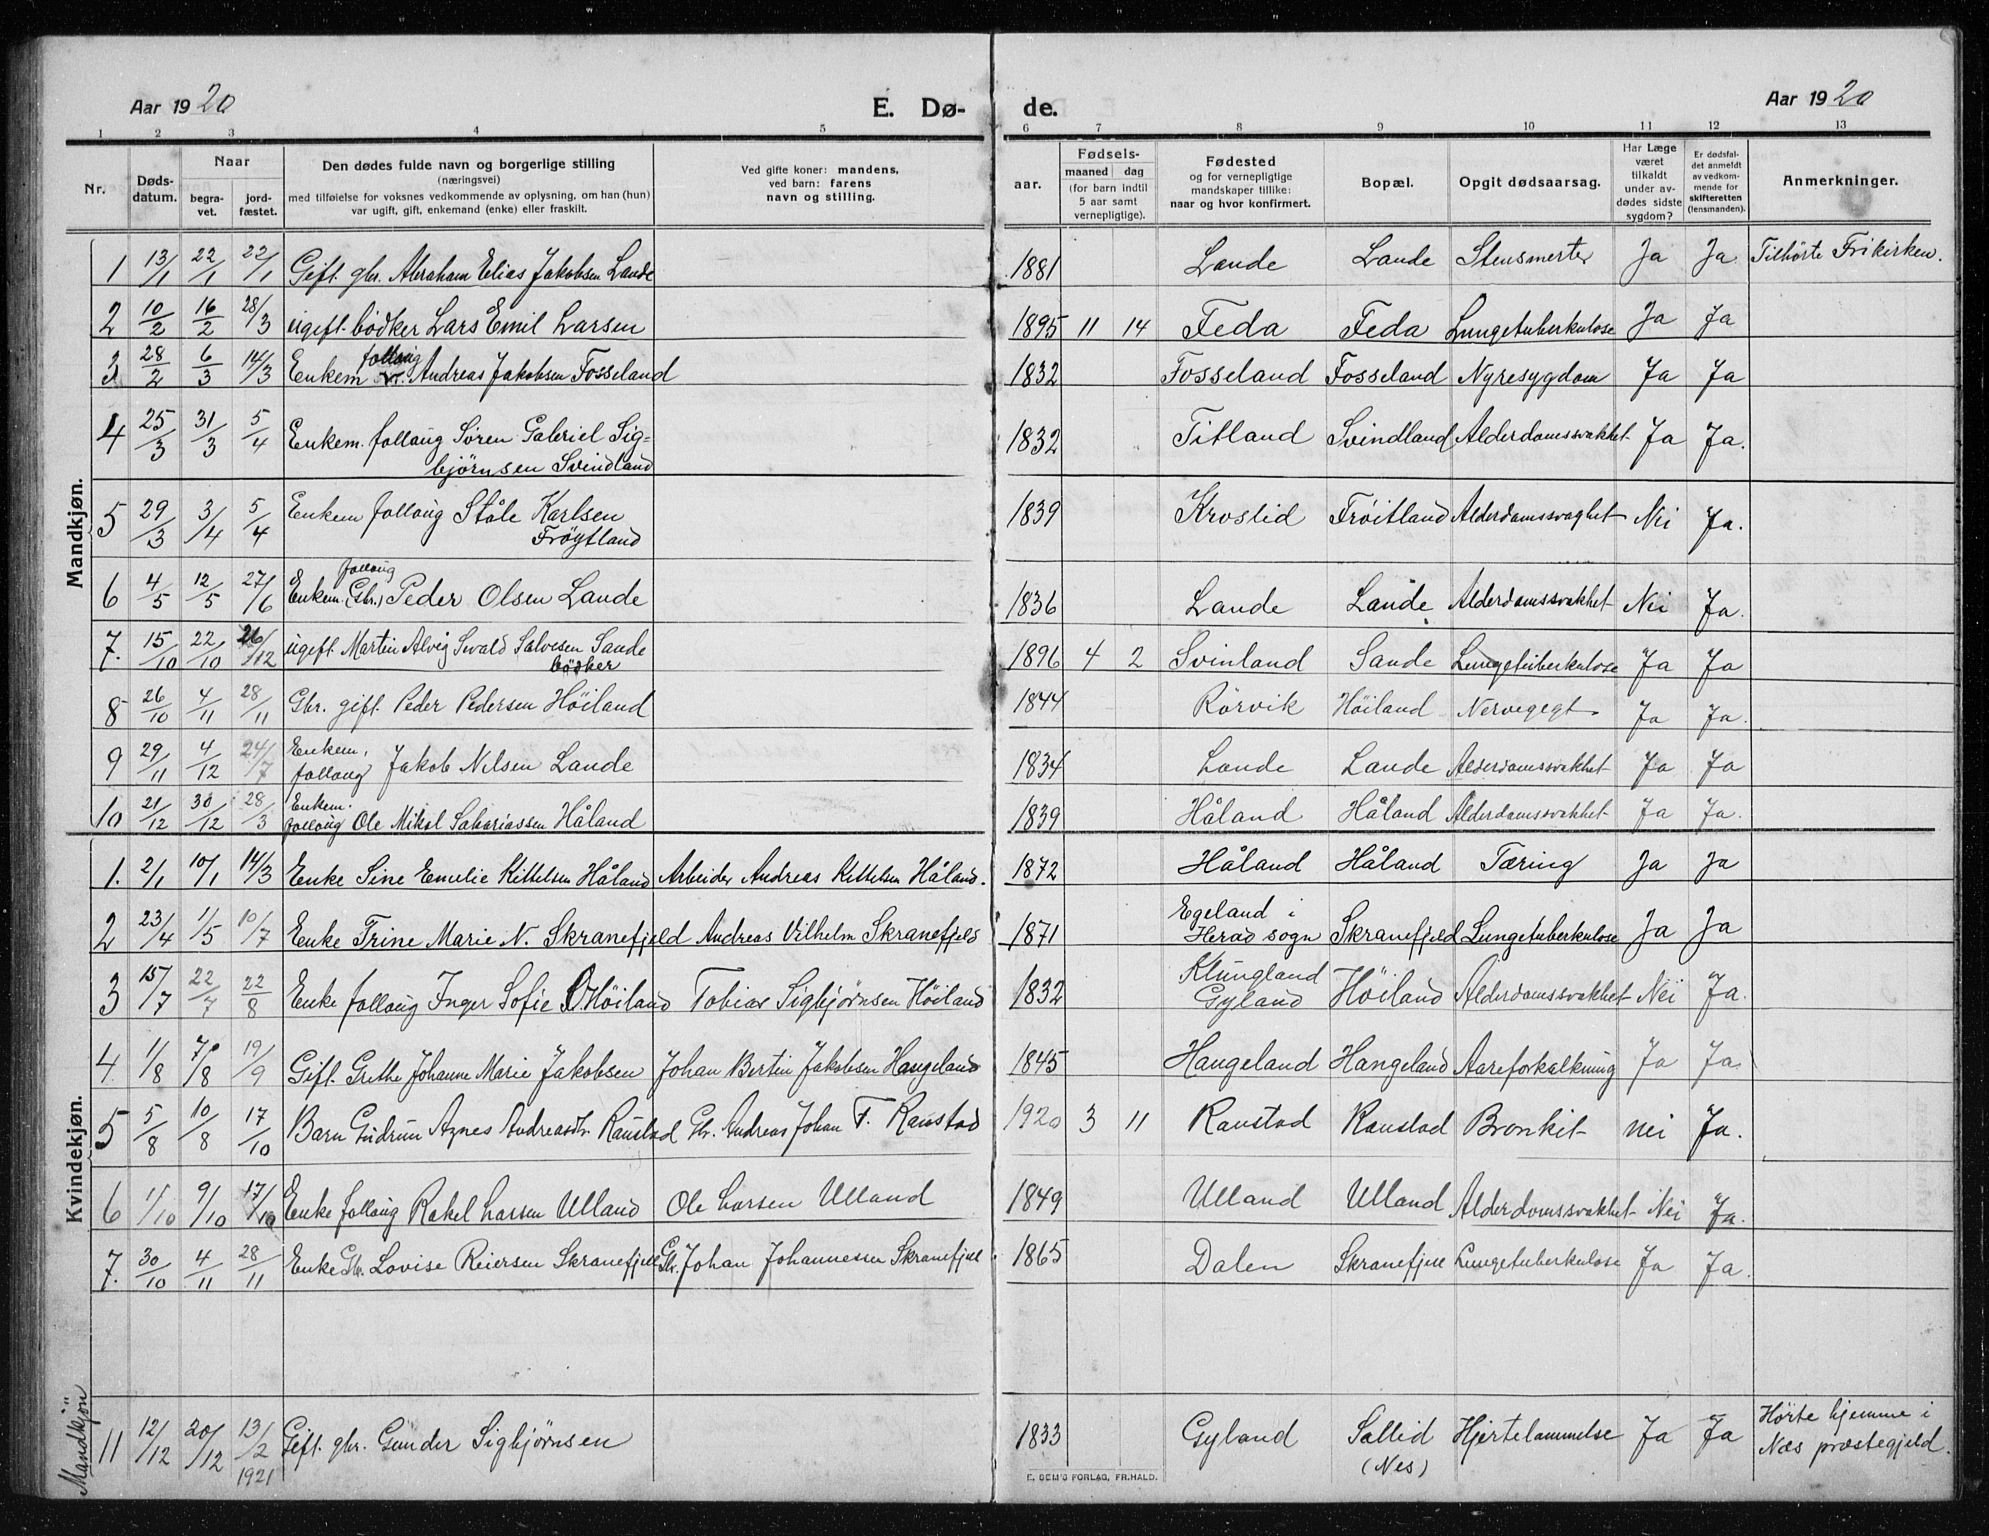 Aar 1920 E. Dø- de. Aar 1920
1 2 3 4 5 6 7 8 9 10 11 12 13
Nr. Døds-datum. Naar begra-vet. jord-fæstet. Den dødes fulde navn og borgerlige stilling (næringsvei) med tilføielse for voksnes vedkommende av oplysning, om han (hun) var ugift, gift, enkemand (enke) eller fraskilt. Ved gifte koner: mandens, ved barn: farens navn og stilling. aar. Fødsels- maaned dag (for barn indtil 5 aar samt vernepligtige). Fødested og for vernepligtige mandskaper tillike: naar og hvor konfirmert. Bopæl. Opgit dødsaarsag. Har Læge været tilkaldt under av-dødes sidste sygdom? Er dødsfal-det anmeldt av vedkom-mende for skifteretten (lensmanden). Anmerkninger.
Mandkjøn.
1 13/1 22/1 22/1 Gift. gbr. Abraham Elias Jakobsen Lande 1881 Lande Lande Stensmerter Ja Ja Tilhørte Frikirken.
2 10/2 16/2 28/3 ugift. bødker Lars Emil Larsen 1895 11 14 Feda Feda Lungetuberkulose Ja Ja
3 28/2 6/3 14/3 Enkem follaug Andreas Jakobsen Fosseland 1832 Fosseland Fosseland Nyresygdom Ja Ja
4 25/3 31/3 5/4 Enkem. follaug Søren Gabriel Sig=
bjørnsen Svindland 1832 Titland Svindland Alderdomssvakhet Ja Ja.
5 29/3 3/4 5/4 Enkem follaug Ståle Karlsen
Frøytland 1839 Kroslid Frøitland Alderdomssvaghet Nei Ja.
6 4/5 12/5 27/6 Enkem. follaug (Gbr.) Peder Olsen Lande 1836 Lande Lande Alderdomssvakhet Nei Ja.
7. 15/10 22/10 26/12 ugift Martin Alvig Sevald Salvesen Sande
bødker 1896 4 2 Svinland Sande Lungetuberkulose Ja Ja
8 26/10 4/11 28/11 Gbr. gift. Peder Pedersen Høiland 1844 Rørvik Høiland Nervegigt. Ja Ja.
9 29/11 4/12 24/7 Enkem.
follaug Jakob Nilsen Lande 1834 Lande Lande Alderdomssvakhet Ja Ja
10 21/12 30/12 28/3 Enkem.
follaug Ole Mikal Sakariassen Håland 1839 Håland Håland Alderdomssvakhet Ja Ja.
Kvindekjøn.
1. 2/1 10/1 14/3 Enke Sine Emelie Kittelsen Håland Arbeider Andreas Kittelsen Håland. 1872 Håland Håland Tæring Ja Ja
2 23/4 1/5 10/7 Enke Trine Marie N. Skranefjeld Andreas Vilhelm Skranefjeld 1871 Egeland i
Herad sogn Skranefjeld Lungetuberkulose Ja Ja
3 15/7 22/7 22/8 Enke follaug Inger Sofie Høiland Tobias Sigbjørnsen Høiland 1832 Klungland
Gyland Høiland Alderdomssvakhet Nei Ja.
4 1/8 7/8 19/9 Gift. Grethe Johanne Marie Jakobsen Johan Bertin Jakobsen Haugeland 1845 Haugeland Haugeland Aareforkalkning Ja Ja
5 5/8 10/8 17/10 Barn Gudrun Agnes Andreasdtr. Raustad Gbr. Andreas Johan T. Raustad 1920 3 11 Raustad Raustad Bronkit nei Ja.
6 1/10 9/10 17/10 Enke follaug Rakel Larsen Ulland Ole Larsen Ulland 1849 Ulland Ulland Alderdomssvakhet Nei Ja.
7. 30/10 4/11 28/11 Enke Gbr. Lovise Reiersen Skranefjell Gbr. Johan Johannessen Skranefjell 1865 Dalen Skranefjell Lungetuberkulose Ja Ja.
Mandkjön
11 12/12 20/12 13/2 1921 Gift. gbr. Gunder Sigbjørnsen 1833 Gyland Sallid
(Nes) Hjertelammelse Ja Ja Hørte hjemme i
Næs præstegjeld.
E. SEM'S FORLAG, FR.HALD.